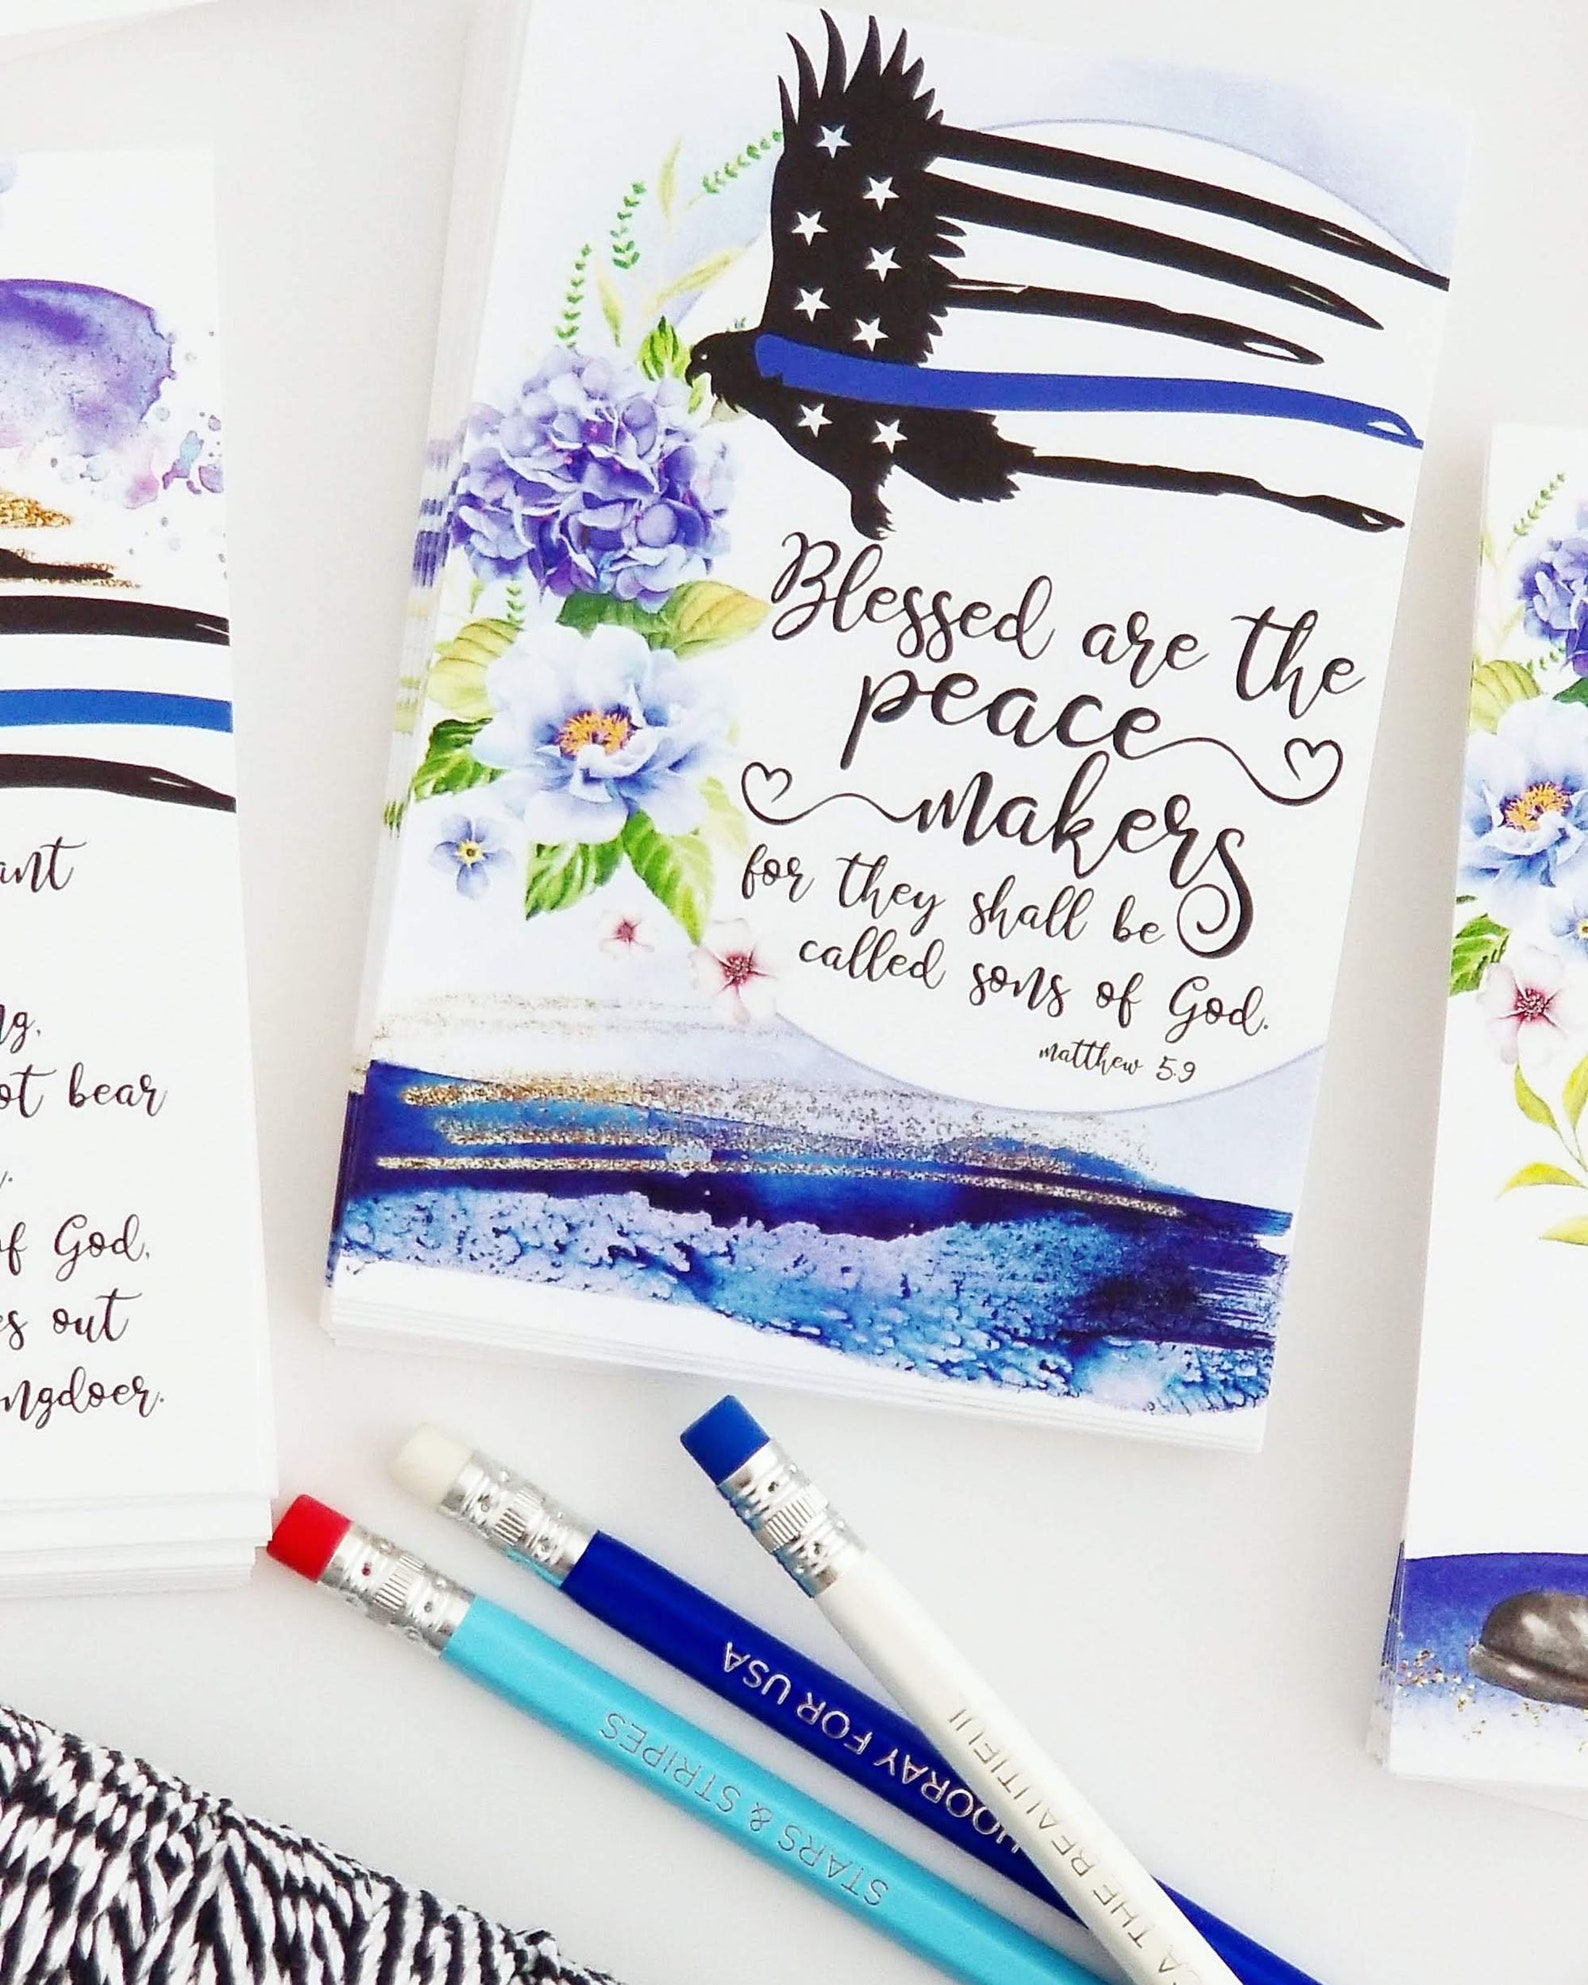 Blessed are the
peace
makers
for they shall be
called sons of God.
matthew 5:9
bear
God,
out
STARS & STRIPES
HOORAY FOR USA
THE BEAUTIFUL